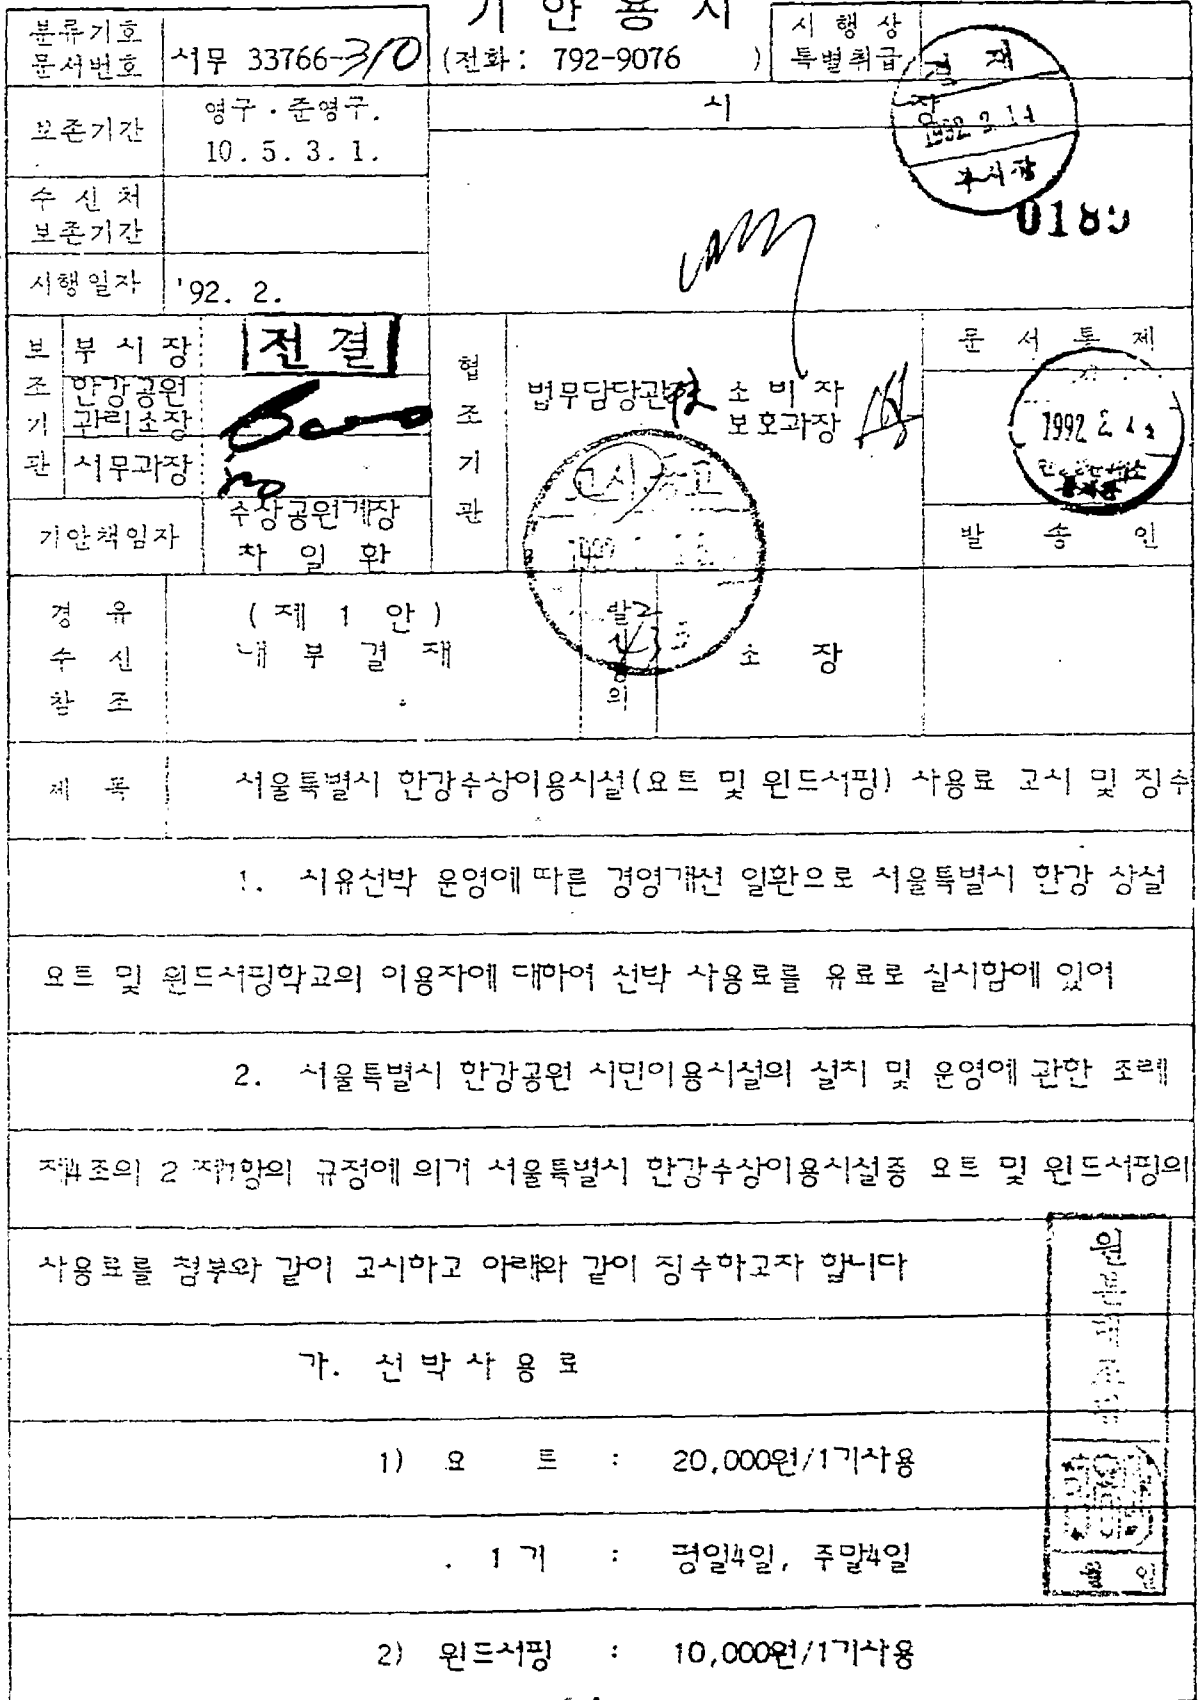 기 안 용 지
분류기호
문서번호
서무 33766-310
(전화: 792-9076 )
시 행 상
특별취급
보존기간
영구·준영구.
10. 5. 3. 1.
시 장
결 재
1992 2 14
부시장
수 신 처
보존기간
시행일자
'92. 2.
보조기관
부 시 장
전 결
한강공원
관리소장
서무과장
기안책임자
수상공원계장
차 일 환
협조기관
법무담당관
소 비 자
보호과장
고시공고
문 서 통 제
1992 2
발 송 인
경 유
수 신
참 조
(제 1 안)
내 부 결 재
소 장
제 목
서울특별시 한강수상이용시설(요트 및 윈드서핑) 사용료 고시 및 징수
1. 시유선박 운영에 따른 경영개선 일환으로 서울특별시 한강 상설
요트 및 윈드서핑학교의 이용자에 대하여 선박 사용료를 유료로 실시함에 있어
2. 서울특별시 한강공원 시민이용시설의 설치 및 운영에 관한 조례
제4조의 2 제1항의 규정에 의거 서울특별시 한강수상이용시설중 요트 및 윈드서핑의
사용료를 첨부와 같이 고시하고 아래와 같이 징수하고자 합니다
가. 선 박 사 용 료
1) 요 트 : 20,000원/1기사용
. 1 기 : 평일4일, 주말4일
2) 윈드서핑 : 10,000원/1기사용
원본대조필
월 일